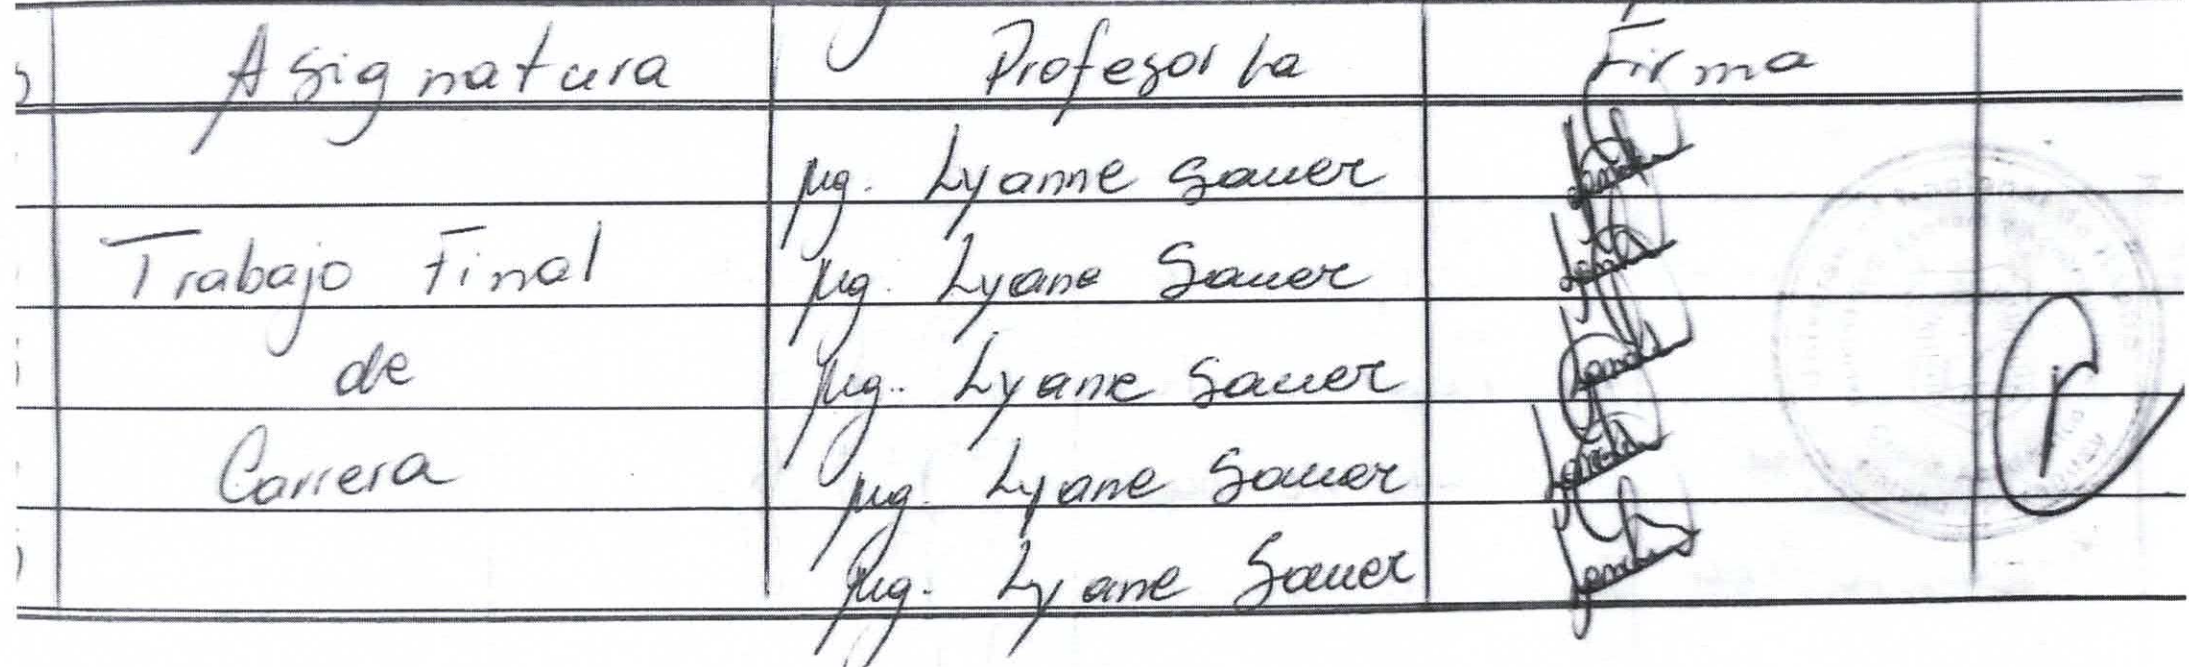 Asignatura Profesor/a Firma
Mg. Lyanne Sauer
Trabajo Final Mg. Lyane Sauer
de Mg. Lyane Sauer
Carrera Mg. Lyane Sauer
Mg. Lyane Sauer